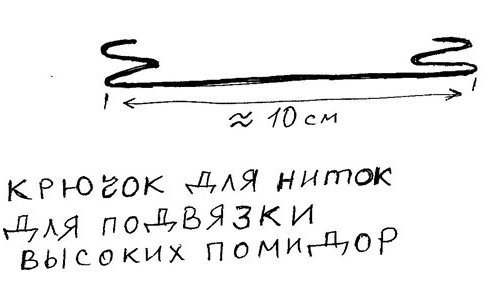 ≈ 10 см
КРЮЧОК ДЛЯ НИТОК
ДЛЯ ПОДВЯЗКИ
ВЫСОКИХ ПОМИДОР